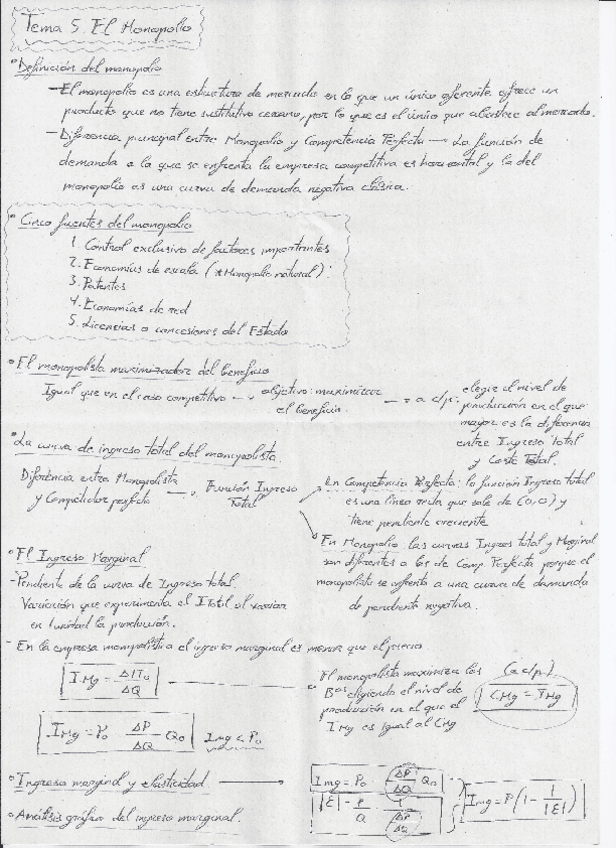 Tema 5. El Monopolio
Definición del monopolio
- El monopolio es una estructura de mercado en la que un único oferente ofrece un
producto que no tiene sustitutivo cercano, por lo que es el único que abastece al mercado.
- Diferencia principal entre Monopolio y Competencia Perfecta → La función de
demanda a la que se enfrenta la empresa competitiva es horizontal y la del
monopolio es una curva de demanda negativa clásica.
Cinco fuentes del monopolio
1. Control exclusivo de factores importantes
2. Economías de escala (*Monopolio natural):
3. Patentes
4. Economías de red
5. Licencias o concesiones del Estado
El monopolista maximizador del beneficio
Igual que en el caso competitivo → objetivo: maximizar
el beneficio.
→ a c/p: elegir el nivel de
producción en el que
mayor es la diferencia
entre Ingreso Total
y Coste Total.
La curva de ingreso total del monopolista.
Diferencia entre Monopolista
y Competidor perfecto
→ Función Ingreso
Total
En Competencia Perfecta: la función Ingreso total
es una línea recta que sale de (0,0) y
tiene pendiente creciente
En Monopolio las curvas Ingreso total y Marginal
son diferentes a las de Comp Perfecta porque el
monopolista se enfrenta a una curva de demanda
de pendiente negativa.
El Ingreso Marginal
- Pendiente de la curva de Ingreso total.
Variación que experimenta el ITotal al variar
en 1 unidad la producción.
- En la empresa monopolista el ingreso marginal es menor que el precio
IMg = ΔITo / ΔQ
El monopolista maximiza los
Bos eligiendo el nivel de
producción en el que el
IMg es igual al CMg
(a c/p)
CMg = IMg
IMg = Po - ΔP/ΔQ Qo
Img < Po
Ingreso marginal y elasticidad →
Img = Po - ΔP/ΔQ Qo
|E| = P/Q 1/(ΔP/ΔQ)
Img = P(1 - 1/|E|)
Análisis gráfico del ingreso marginal.